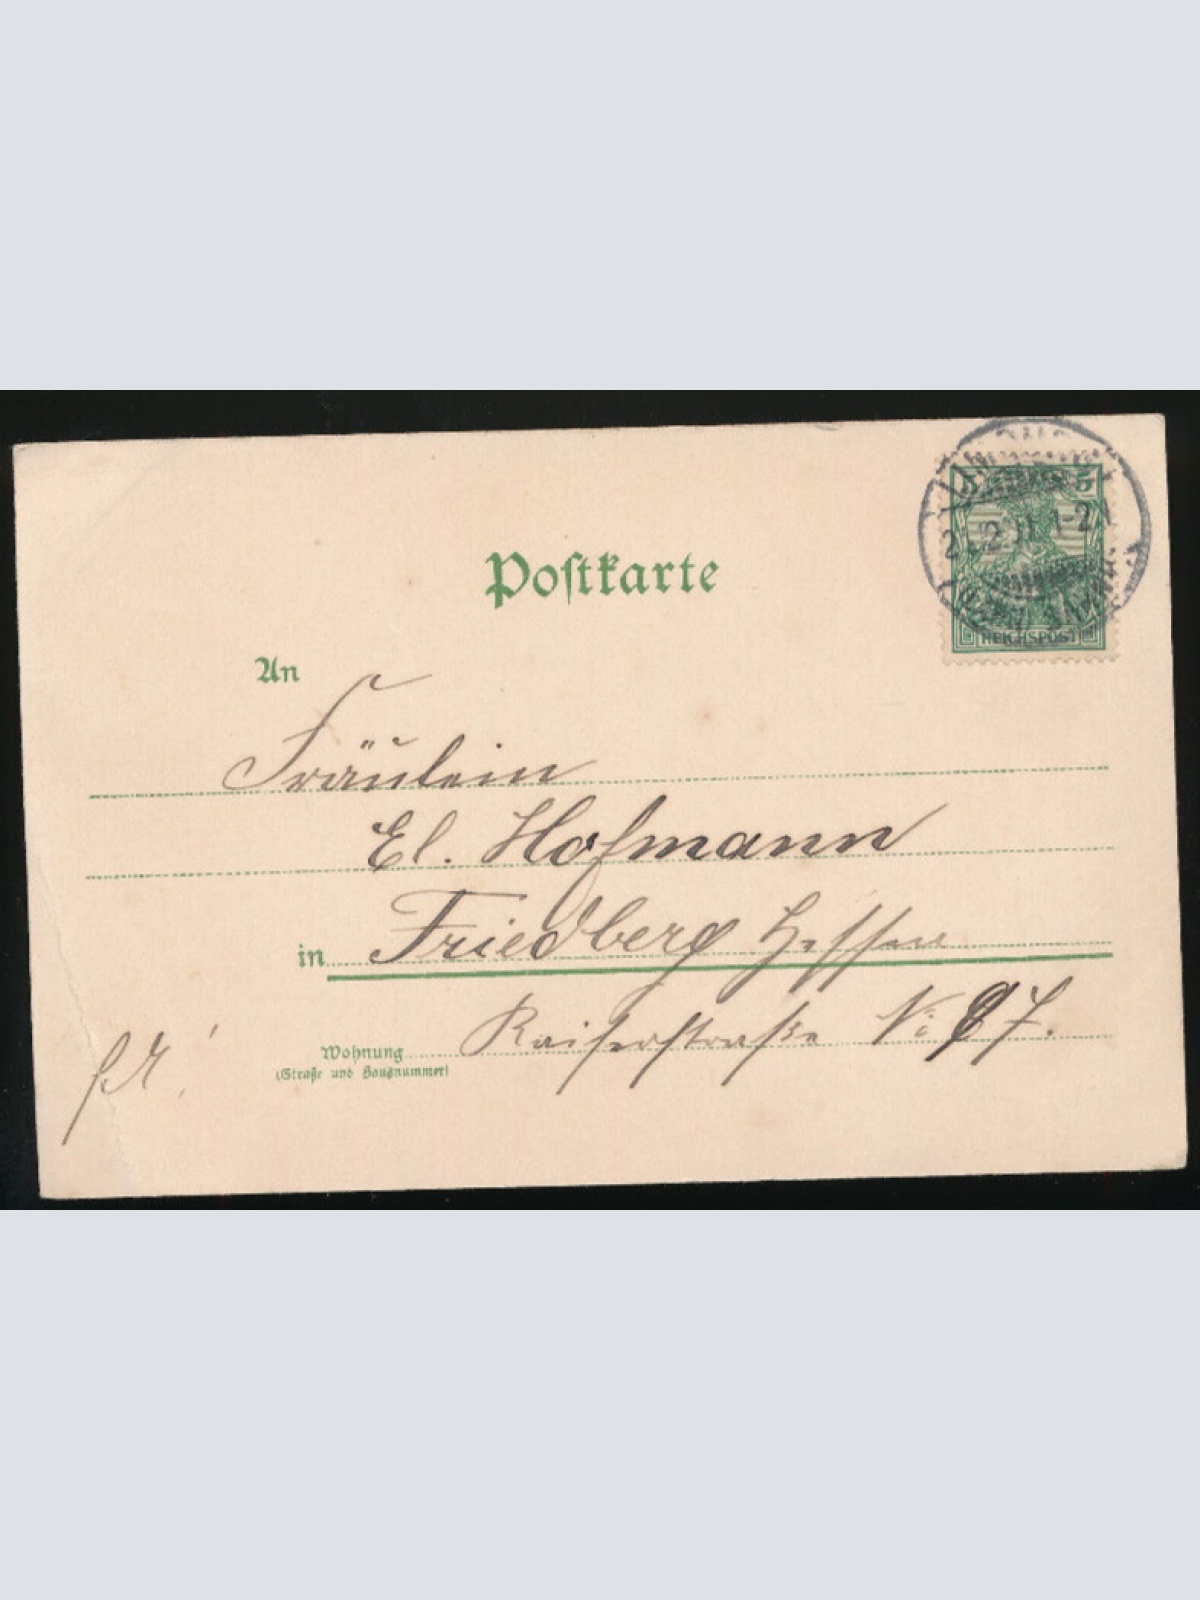 5
REICHSPOST
Postkarte
An
Fräulein
El. Hofmann
in Friedberg Hessen
Wohnung Kaiserstraße No 87.
(Straße und Hausnummer)